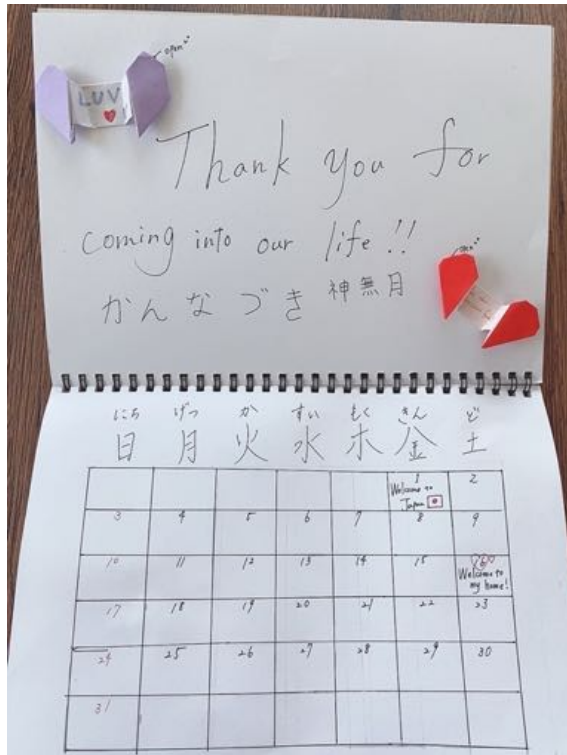 open
LUV
Thank you for
coming into our life!!
かんなづき 神無月
にち げつ か すい もく きん ど
日 月 火 水 木 金 土
1 2
Welcome to
Japan
3 4 5 6 7 8 9
10 11 12 13 14 15 16
Welcome to
my home!
17 18 19 20 21 22 23
24 25 26 27 28 29 30
31